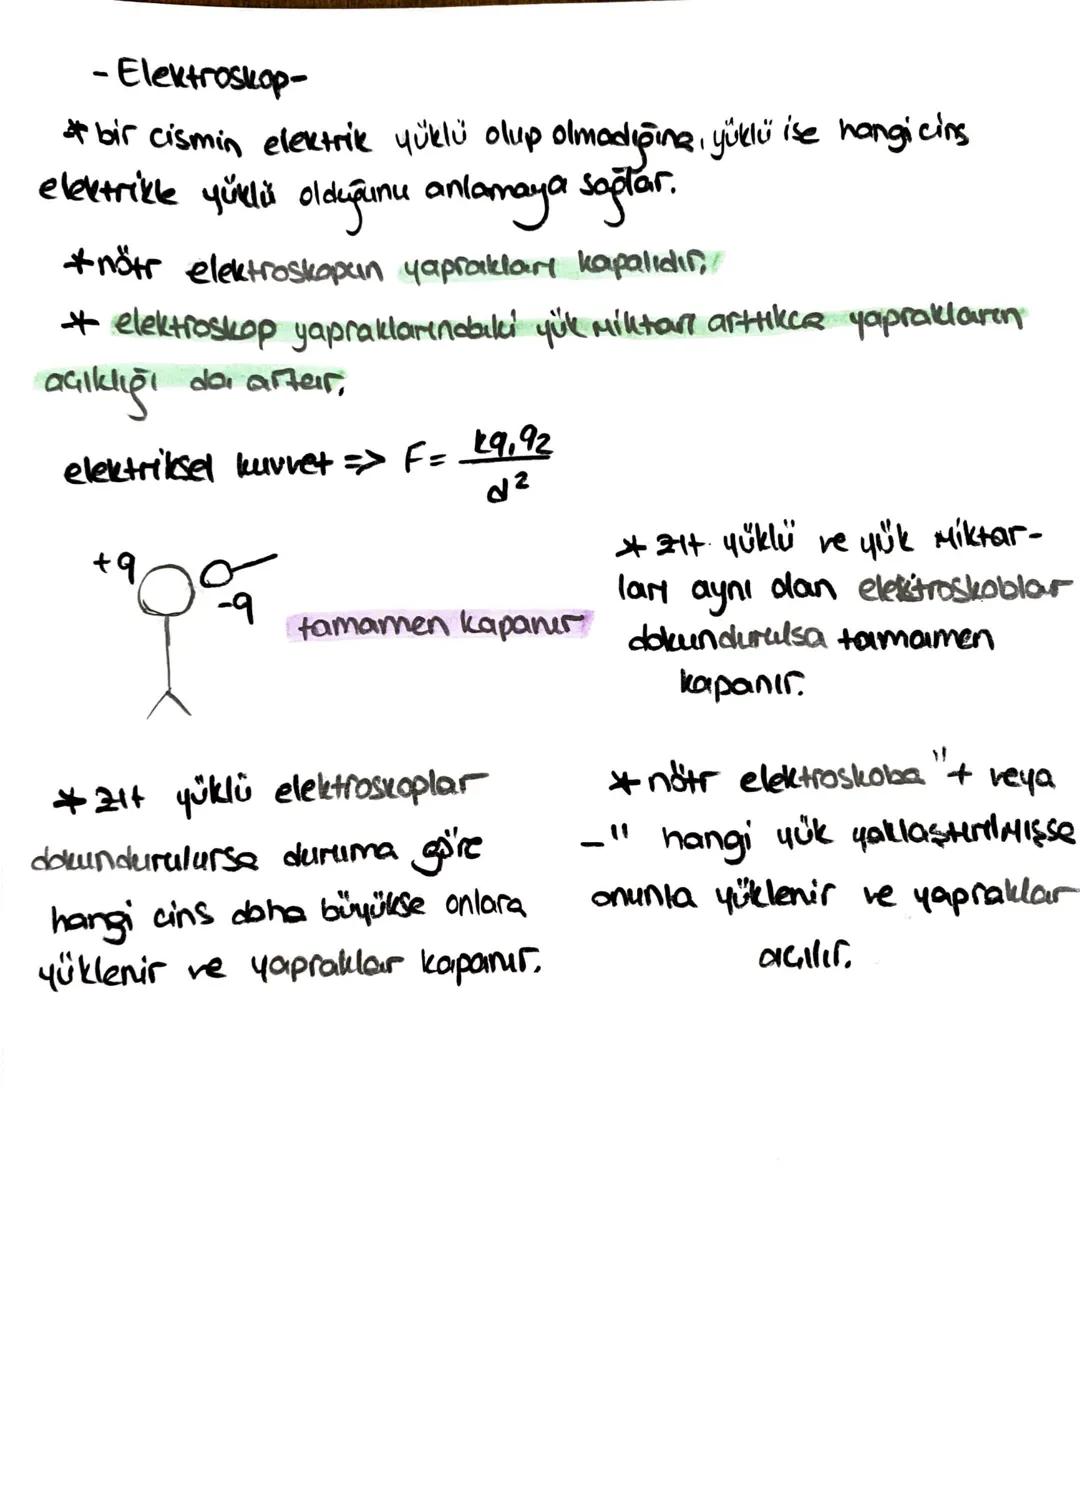 - Elektroskop-
* bir cismin elektrik yüklü olup olmadığına, yüklü ise hangi cins
elektrikle yüklü olduğunu anlamaya sağlar.
* nötr elektroskopun yaprakları kapalıdır,
* elektroskop yapraklarındaki yük miktarı arttıkça yaprakların
açıklığı da artar,
elektriksel kuvvet => F= kq₁q₂
d²
+q
-q
tamamen kapanır
* zıt yüklü ve yük miktar-
ları aynı olan elektroskoblar
dokundurulsa tamamen
kapanır.
* zıt yüklü elektroskoplar
dokundurulursa duruma göre
hangi cins daha büyükse onlara
yüklenir ve yapraklar kapanır.
* nötr elektroskoba "+ veya
-" hangi yük yaklaştırılmışsa
onunla yüklenir ve yapraklar
açılır.